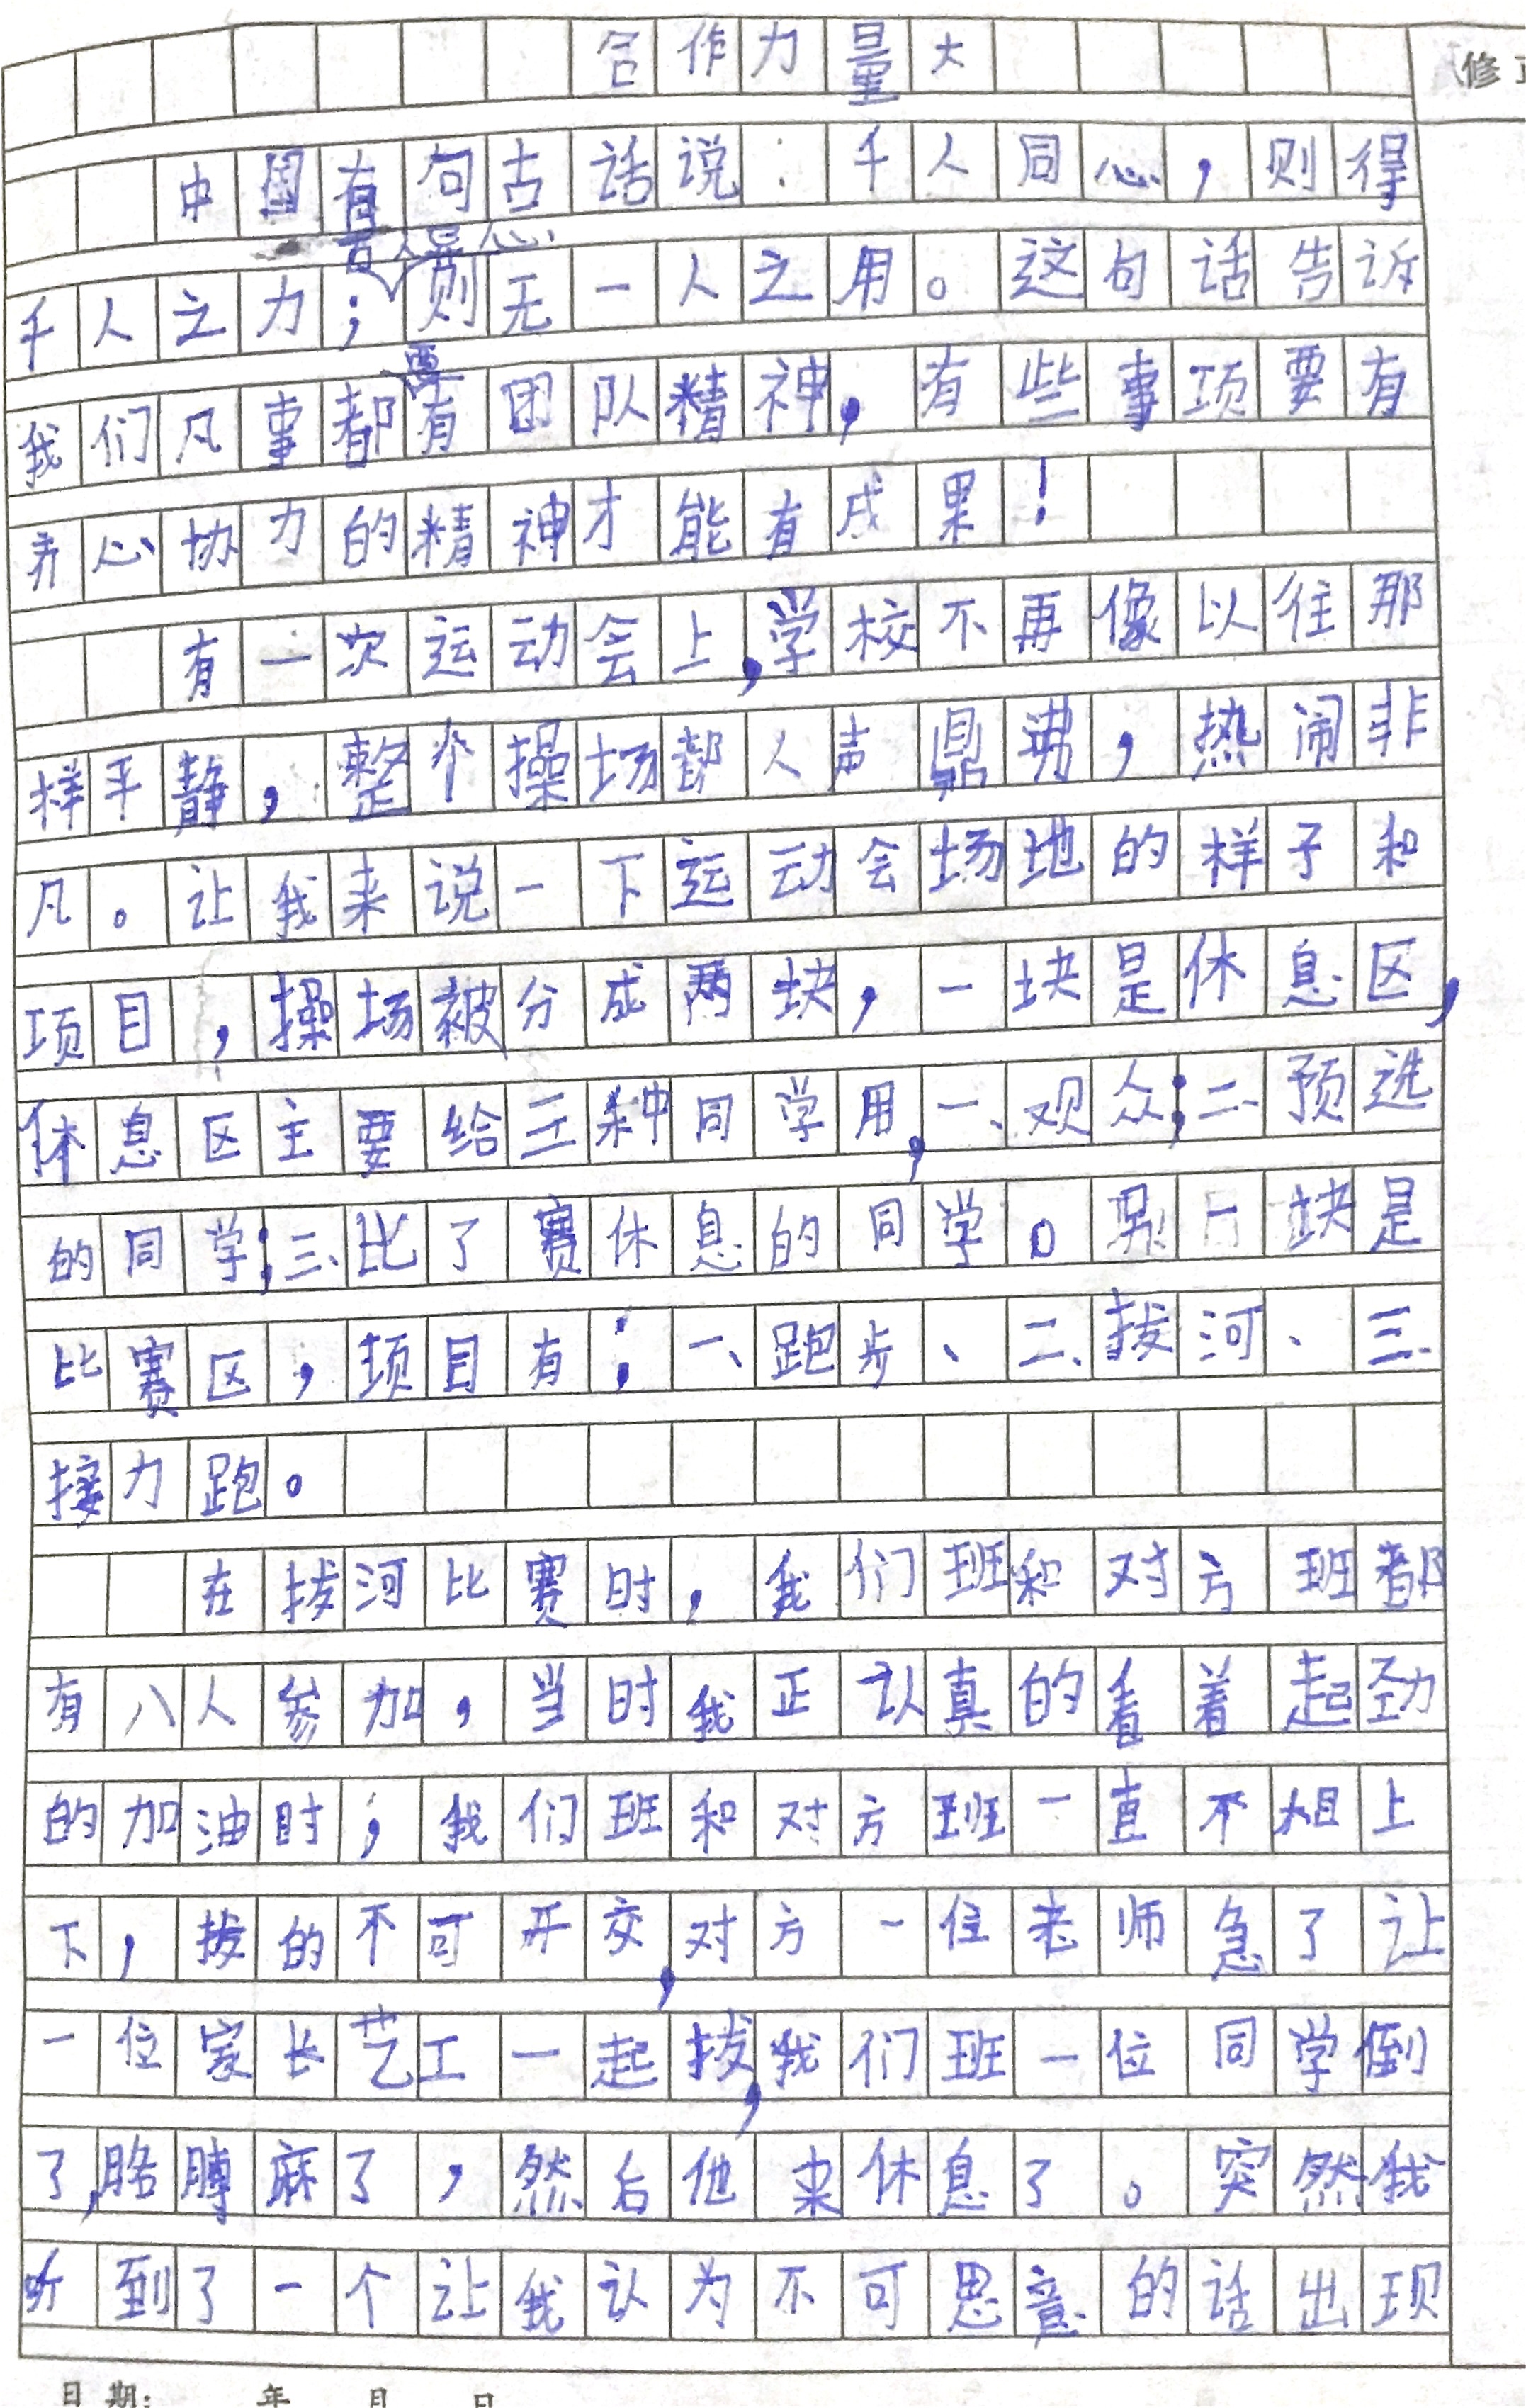 合作力量大
修
中国有句古话说：千人同心，则得
万人异心
千人之力；则无一人之用。这句话告诉
要
我们凡事都有团队精神，有些事项要有
齐心协力的精神才能有成果！
有一次运动会上，学校不再像以往那
样平静，整个操场都人声鼎沸，热闹非
凡。让我来说一下运动会场地的样子和
项目，操场被分成两块，一块是休息区，
休息区主要给三种同学用，一、观众；二、预选
的同学；三、比了赛休息的同学。另一块是
比赛区，项目有；一、跑步、二、拔河、三、
接力跑。
在拔河比赛时，我们班和对方班都
有八人参加，当时我正认真的看着起劲
的加油时；我们班和对方班一直不相上
下，拔的不可开交，对方一位老师急了让
一位家长艺工一起拔，我们班一位同学倒
了，胳膊麻了，然后他来休息了。突然我
听到了一个让我认为不可思意的话出现
日期： 年 月 日